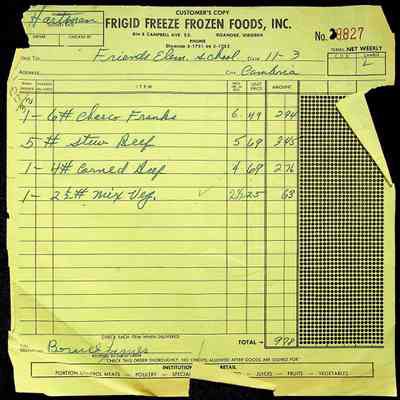 Hartman
CUSTOMER'S COPY
FRIGID FREEZE FROZEN FOODS, INC.
814 E CAMPBELL AVE. S.E. ROANOKE, VIRGINIA
PHONE
No. 38827
TERMS: NET WEEKLY
Friends Elem. School DATE 11-3
ADDRESS Cambria
ITEM UNIT PRICE AMOUNT
1- 6# Franks 6 49 294
5# Stew Beef 5 69 345
1- 4# Corned Beef 4 69 276
1- 2½# Mix Veg. 2½ 25 63
CHECK EACH ITEM WHEN DELIVERED
TOTAL 978
"CHECK THIS ORDER THOROUGHLY. NO CREDITS ALLOWED AFTER GOODS ARE SIGNED FOR"
INSTITUTION RETAIL
PORTION CONTROL MEATS — POULTRY — SPECIAL — JUICES — FRUITS — VEGETABLES